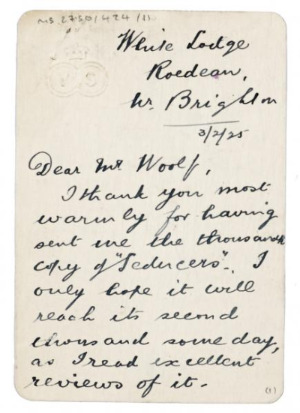 MS 2750/424/(1)
White Lodge
Roedean,
Nr. Brighton
3/2/25
Dear Mr Woolf,
I thank you most
warmly for having
sent me the thousandth
copy of "Seducers". I
only hope it will
reach its second
thousand some day,
as I read excellent
reviews of it.
(1)